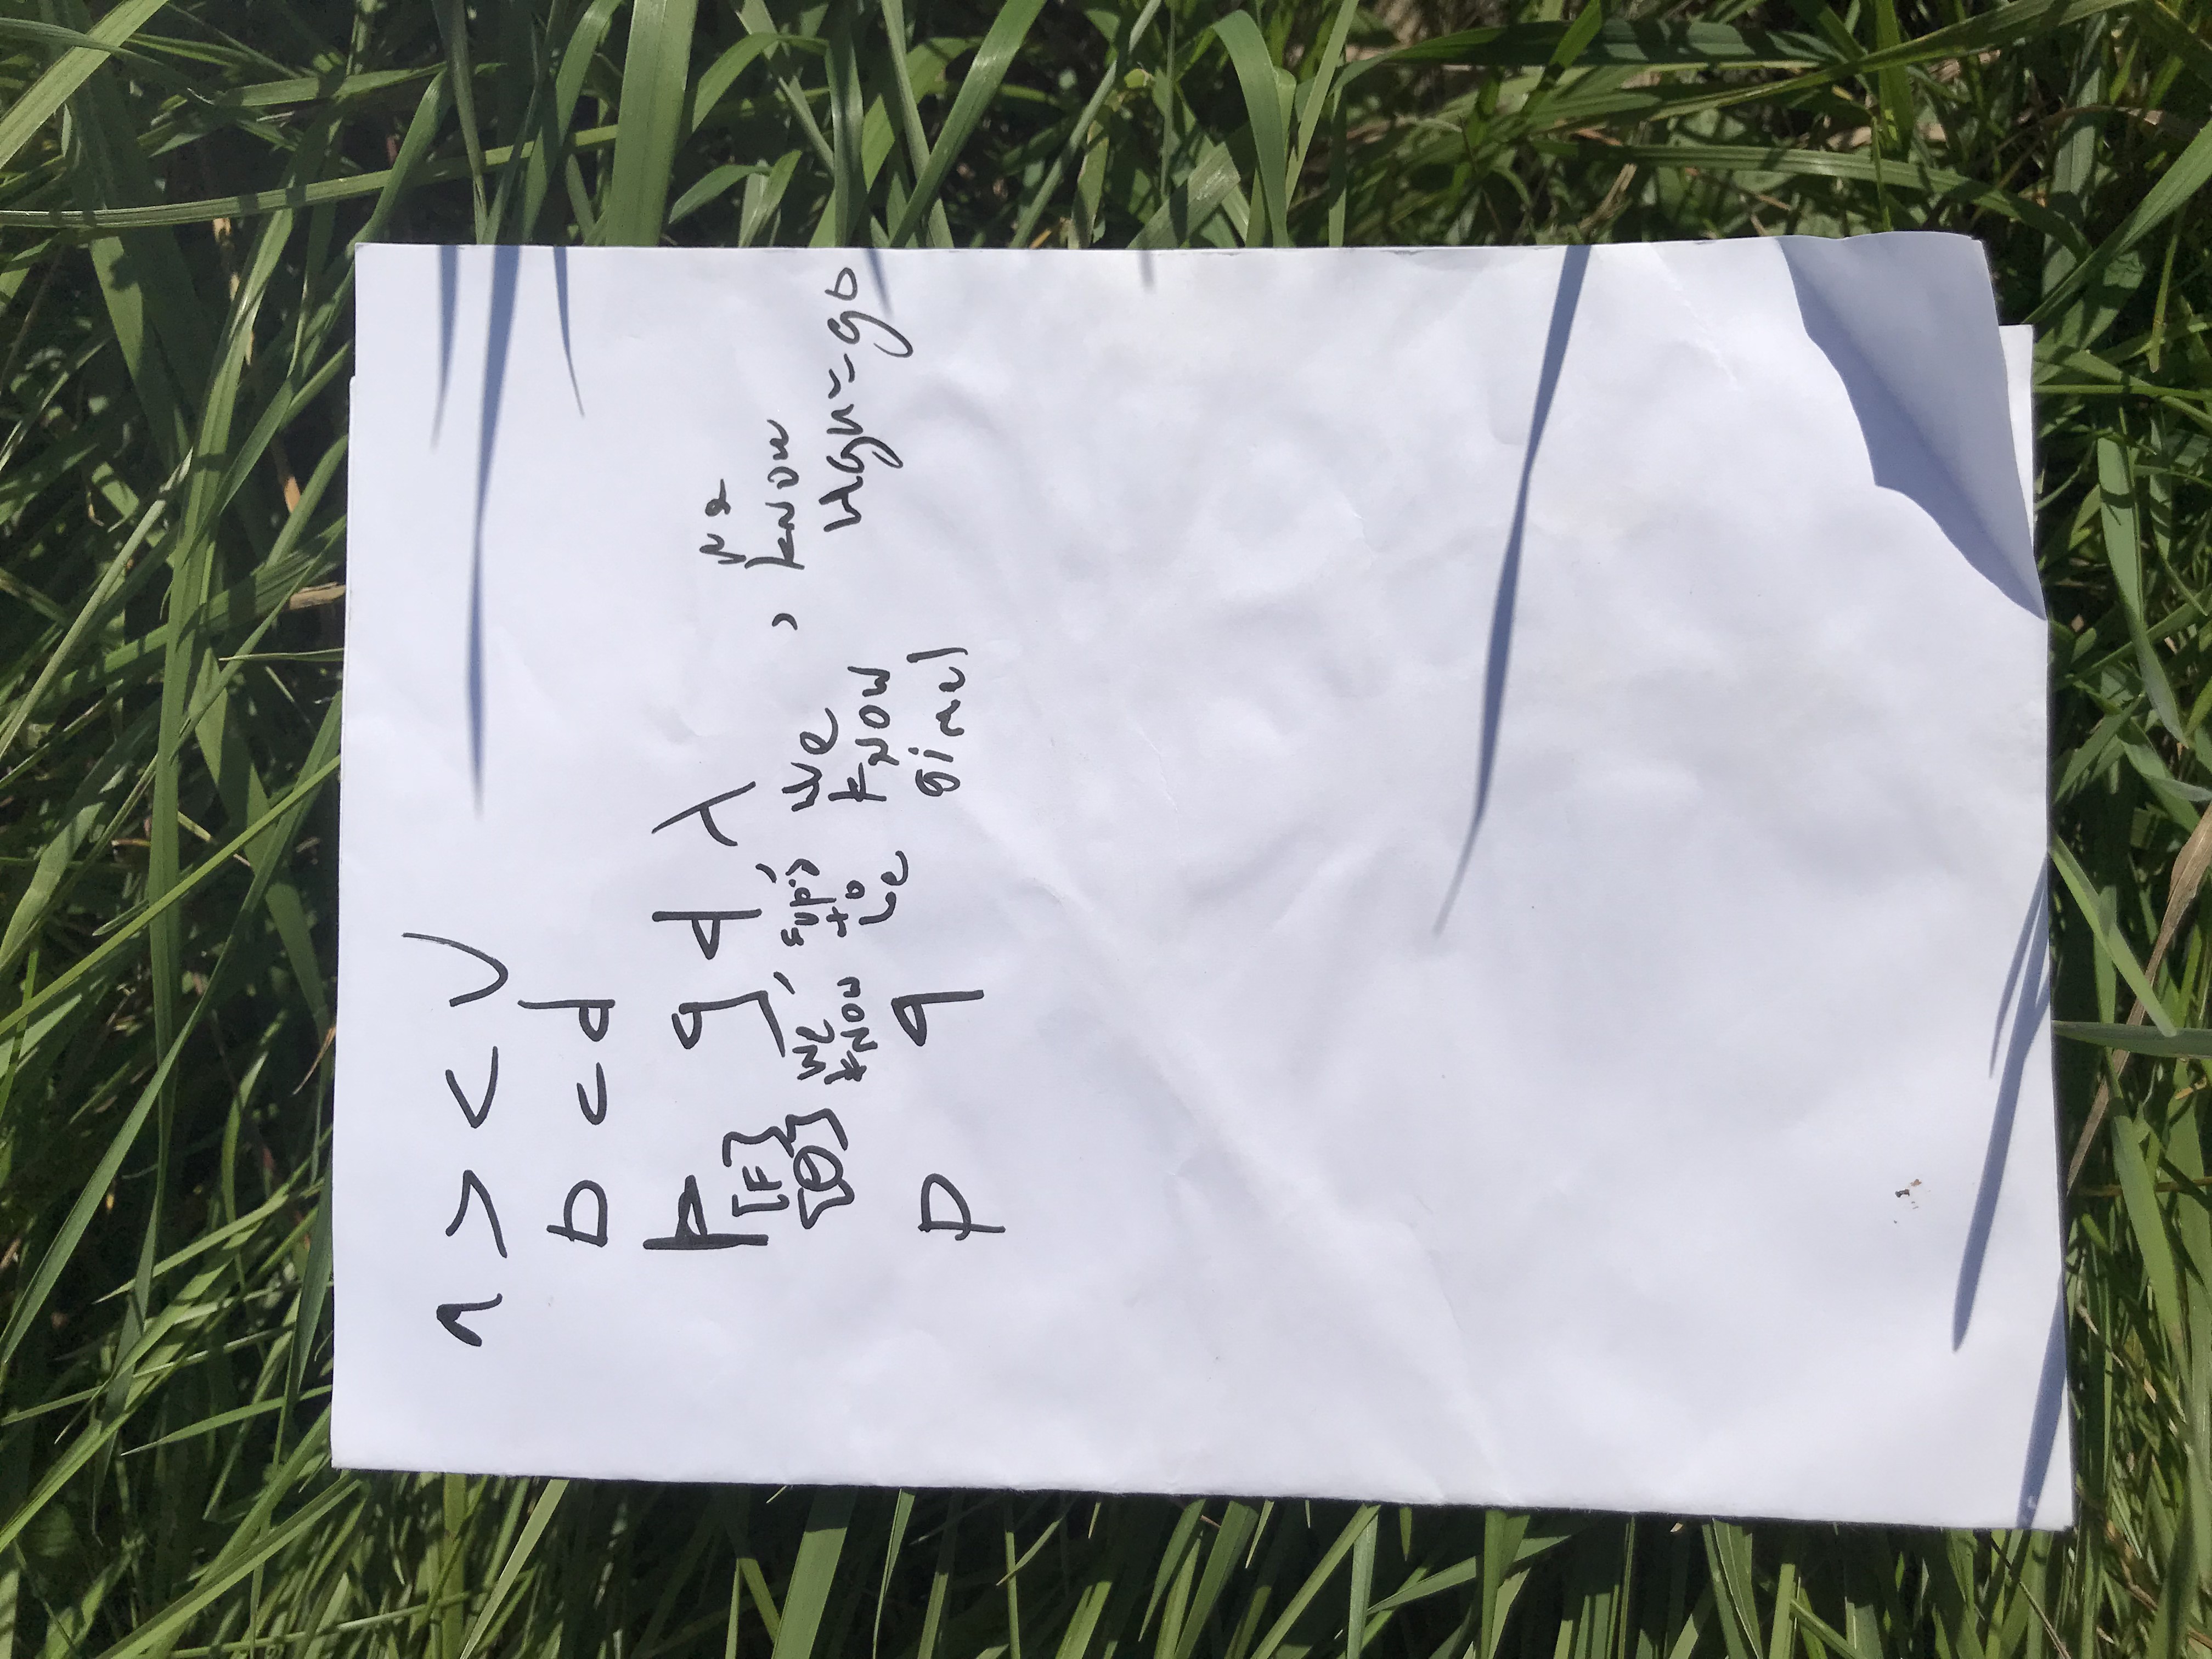 ʌ > < V
b c d
þ g d λ
[F]
[Θ]
we know, sup's to be, we know gimel, we know Ugn = go
p q